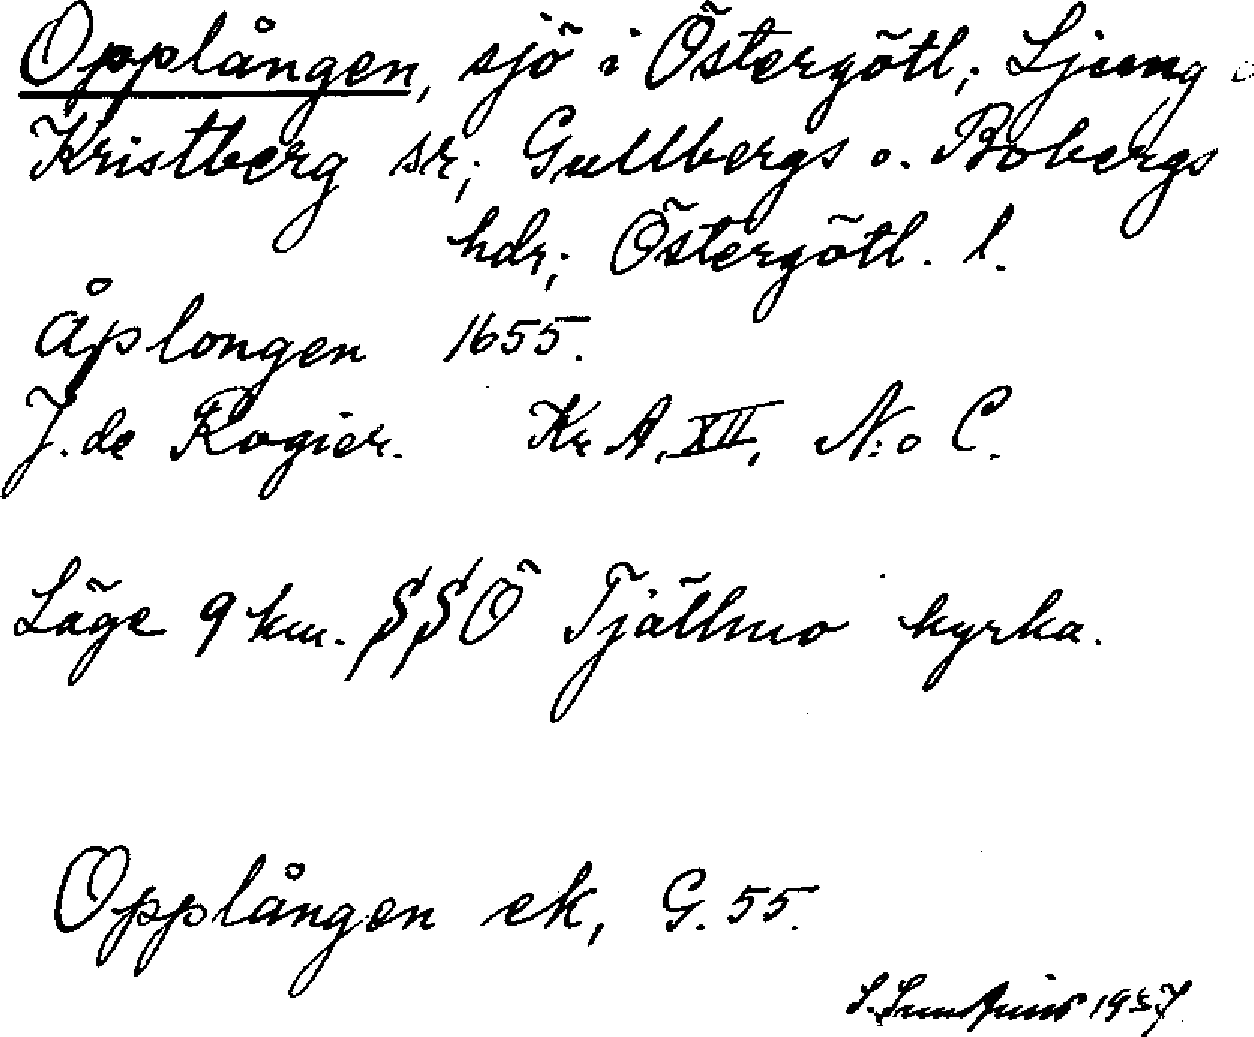 Opplången, sjö i Östergötl; Ljung o
Kristberg sr; Gullbergs o. Bobergs
hdr; Östergötl. l.
åplongen 1655.
J. de Rogier. Kr A, XII, N:o C.
Läge 9 km. SSÖ Tjällmo kyrka.
Opplången ek, G. 55.
S.